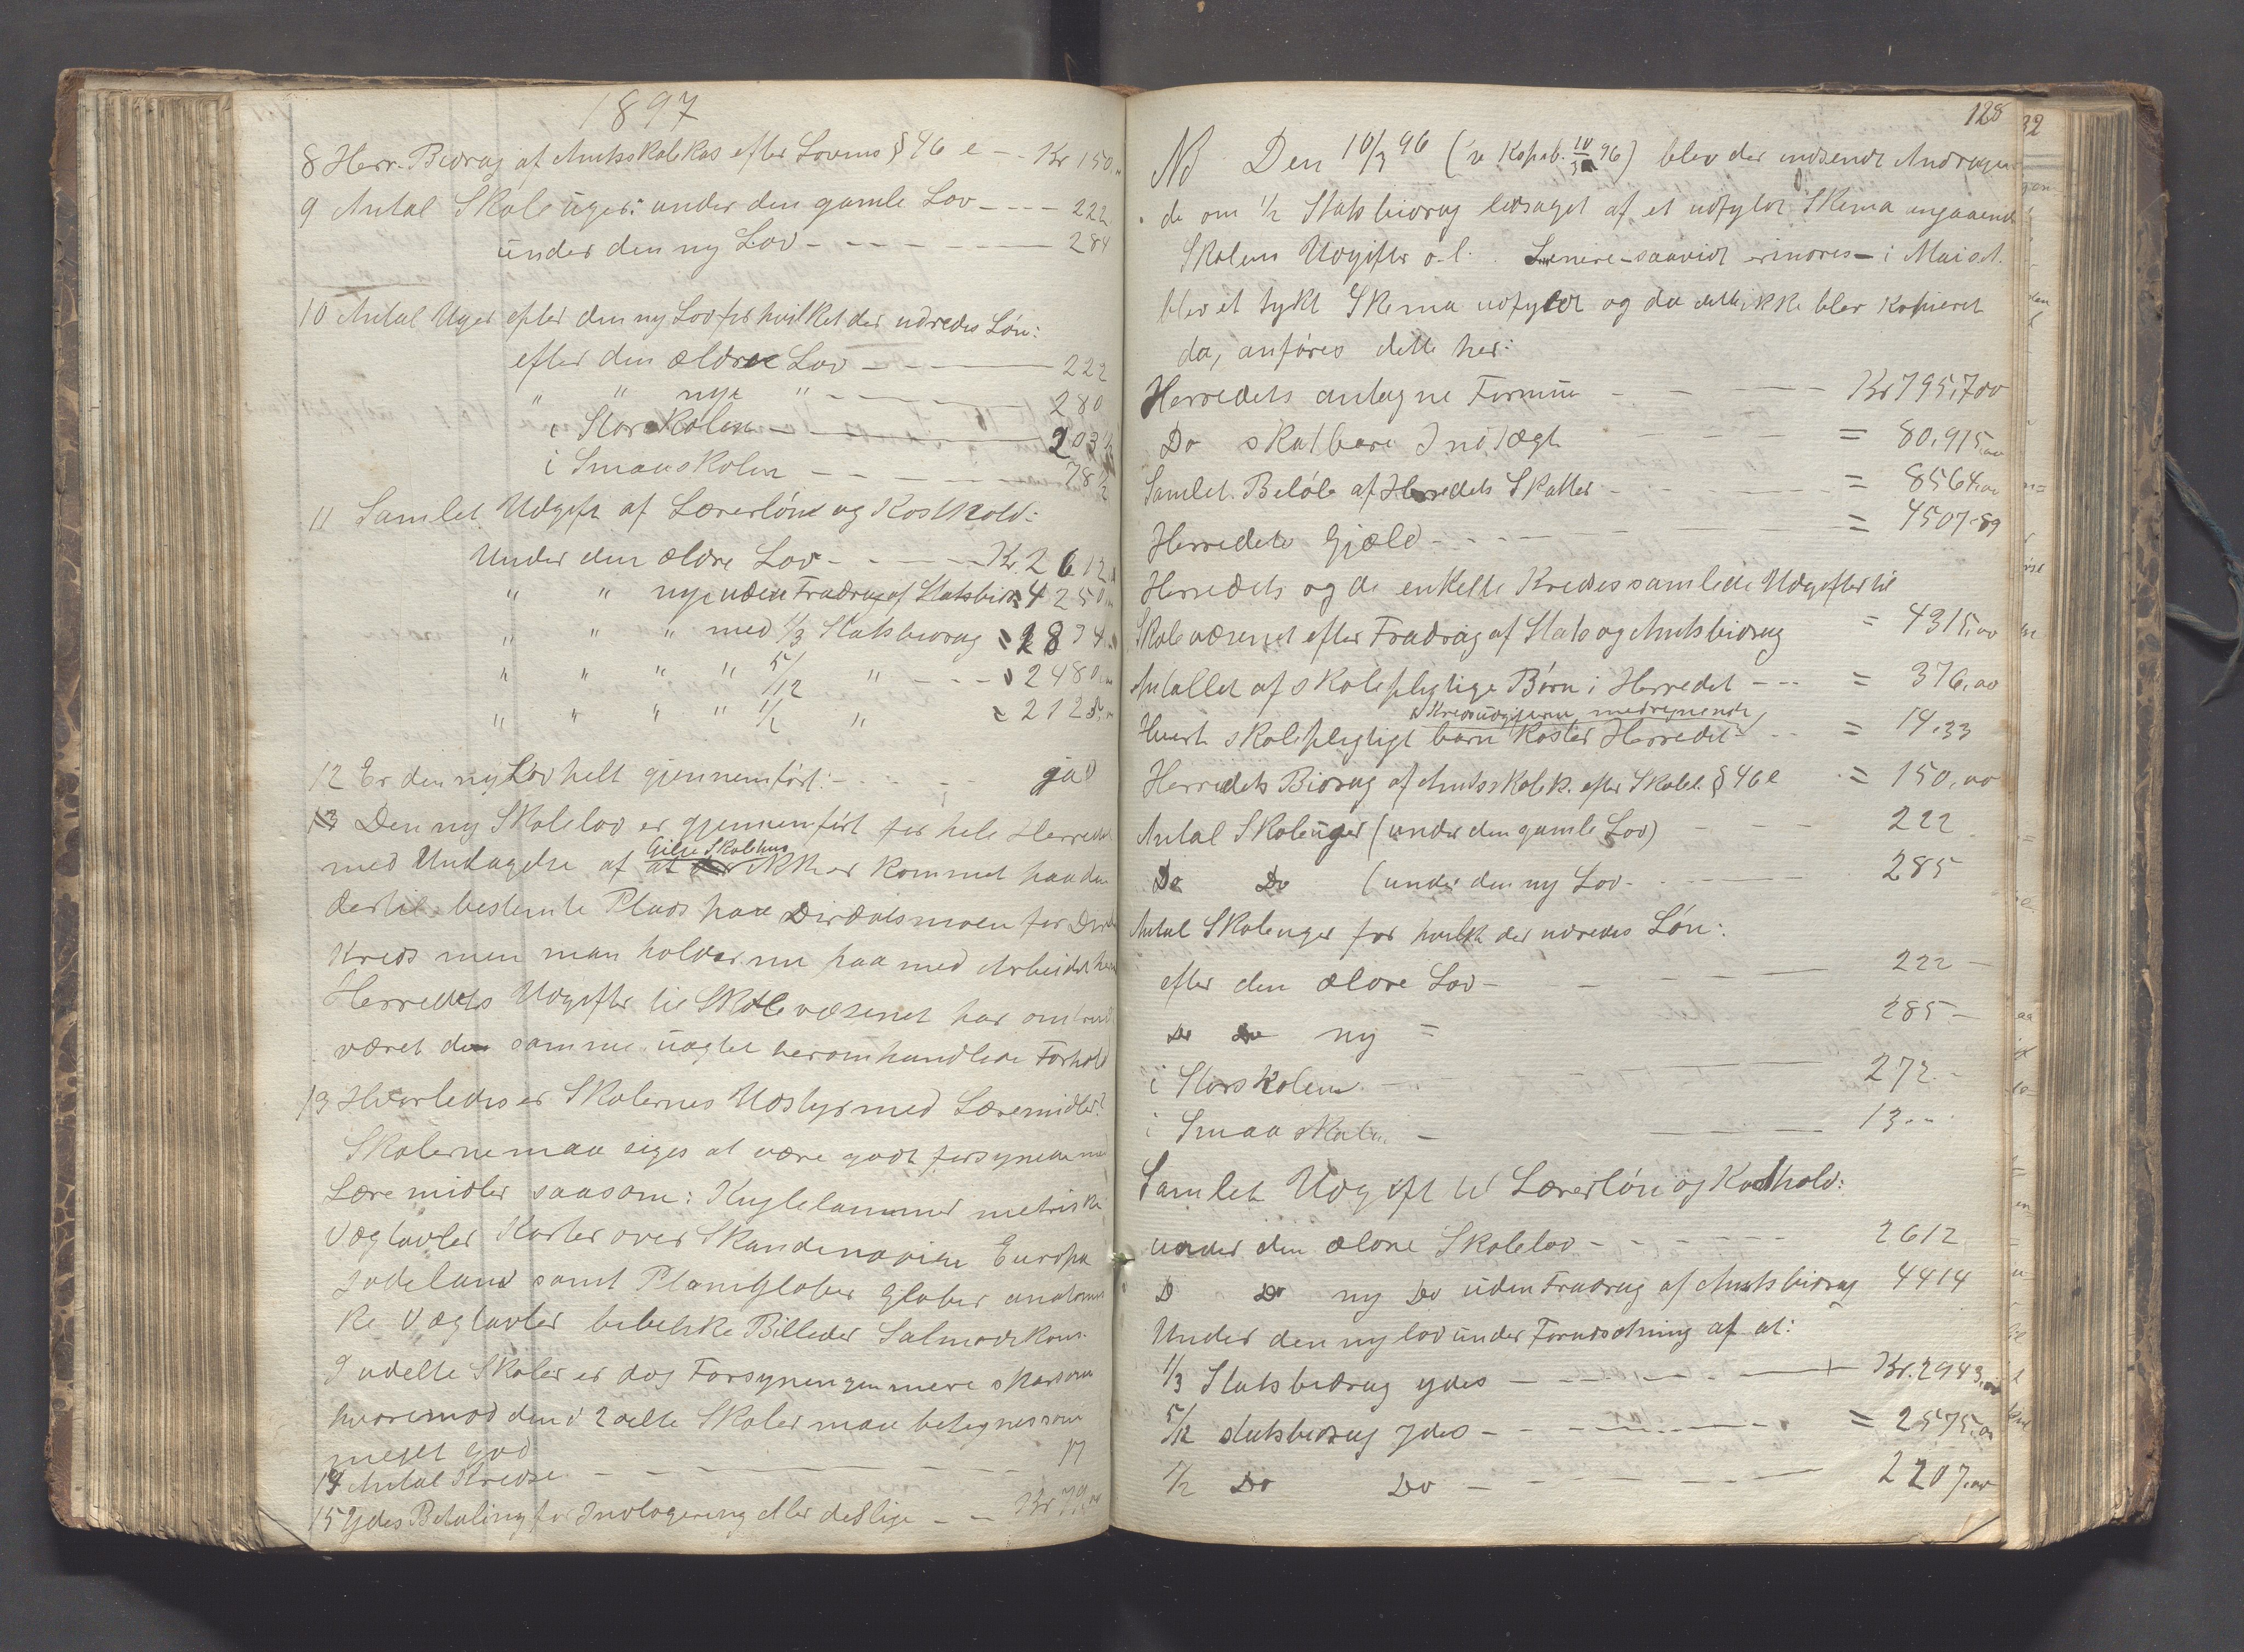 1897
8 Herr. Bidrag af Amtsskolekas efter Lovens § 46 e - - Kr 150,"
9 Antal Skoleuger: under den gamle Lov - - - - 222
under den ny Lov - - - - - - 284
10 Antal Uger efter den ny Lov for hvilket der udredes Løn:
efter den ældre Lov - - - - 222
" " nye " - - - - 280
i Storskolen - - - 203½
i Smaaskolen - - - - 78½
11 Samlet Udgift af Lærerløn og Kosthold:
Under den ældre Lov - - - - Kr. 2612
" " nye uden Fradrag af Statsbidr. 4250
" " " med 1/3 Statsbidrag
" " " " 5/12 " - - - 2480
" " " " 1/2 " 2125
12 Er den ny Lov helt gjennemført: - - - - ja
13 Den ny Skolelov er gjennemført for hele Herredet
Gilje Skolehus
med Undtagelse af at ikke er kommet paa den
dertil bestemte Plads paa Dirdalsmoen for
Kreds men man holder nu paa med Arbeidet her
Herredets Udgifter til Skolevæsenet har omtrent
været den samme uagtet heromhandlede Forhold
13 Hvorledes er Skolernes Udstyr med Læremidler?
Skolerne maa siges at være godt forsynede med
Læremidler saasom: Kuglerammer metriske
Vægtavler Karter over Skandinavien Europa
Jødeland samt Planiglober Glober anatomis
ke Vægtavler bibelske Billeder Salmodikon.
I udelte Skoler er dog Forsyningen mere sparsom
hvorimod den i 2delte Skoler maa betegnes som
meget god
14 Antal Kredse - - - - - - 17
15 Ydes Betaling for Indlogering eller deslige - - Kr 79,00
128
NB Den 10/3 96 (se Kopib. 10/3 96) blev der indsendt Andragen
de om ½ Statsbidrag ledsaget af et udfyldt Skema angaaende
Skolens Udgifter o.l. Senere - saavidt erindres - i Mai s.A.
blev et trykt Skema udfyldt og da dette ikke blev kopieret
da, anføres dette her:
Herredets antagne Formue - - - Kr 795,700
Do skatbare Indtægt - - - = 80,915,00
Samlet Beløb af Herredets Skatter - - - = 8564,00
Herredets Gjæld - - - - = 4507,89
Herredets og de enkelte Kredses samlede Udgifter til
Skolevæsenet efter Fradrag af Stats og Amtsbidrag = 4315,00
Antallet af skolepligtige Børn i Herredet - - - = 376,00
Kredsudgifterne medregnende
Hvert skolepligtigt barn koster Herredet - - = 14,33
Herredets Bidrag af Amtsskolek. efter Skolel. § 46 e = 150,00
Antal Skoleuger (under den gamle Lov) - - - 222
Do Do (under den ny Lov - - - 285
Antal Skoleuger for hvilke der udredes Løn:
efter den ældre Lov - - - 222 -
Do Do ny = 285 -
i Storskolen - - - 272 -
i Smaaskolen - - - 13 - -
Samlet Udgift til Lærerløn og Kosthold:
under den ældre Skolelov - - - - - - 2612
D Do ny Do uden Fradrag af Amtsbidrag 4414
Under den ny lov under Forudsætning af at:
1/3 Statsbidrag ydes - - - - - - Kr. 2943,00
5/12 statsbidrag ydes - - - - - = 2575,00
1/2 Do Do - - - - - 2207,00
32